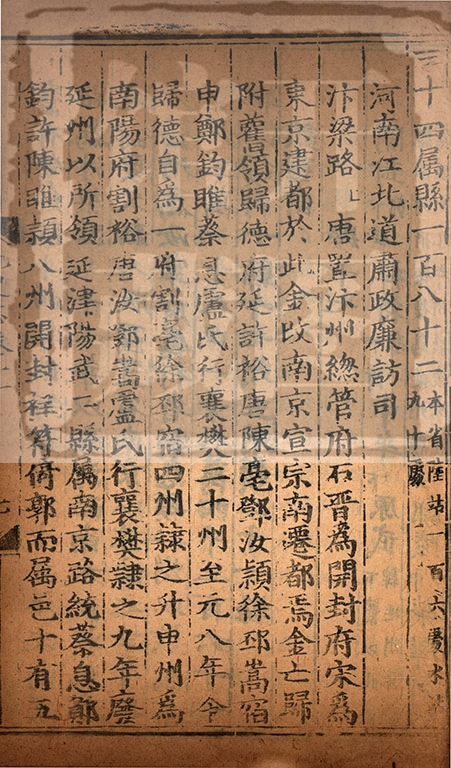 三十四屬縣一百八十二本省陸站一百六處水站九十處
河南江北道肅政廉訪司
汴梁路上唐置汴州總管府石晉為開封府宋為
東京建都於此金改南京宣宗南遷都焉金亡歸
附舊領歸德府延許裕唐陳亳鄧汝潁徐邳嵩宿
申鄭鈞睢蔡息盧氏行襄樊二十州至元八年令
歸德自為一府割亳徐邳宿四州隸之升申州為
南陽府割裕唐汝鄧嵩盧氏行襄樊隸之九年廢
延州以所領延津陽武二縣屬南京路統蔡息鄭
鈞許陳睢潁八州開封祥符倚郭而屬邑十有五